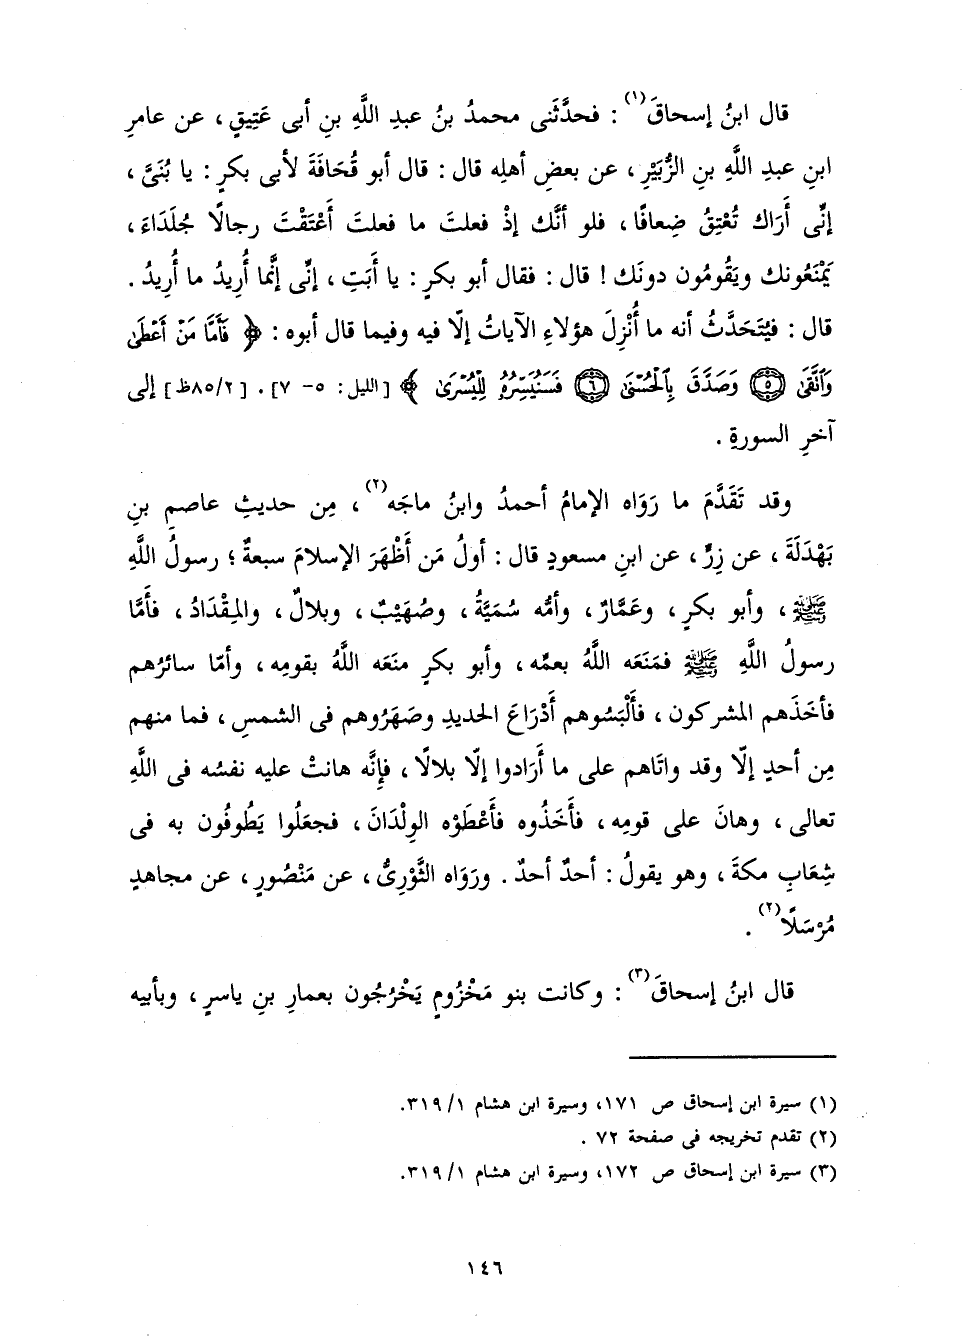 قال ابنُ إسحاقَ(١) : فحدَّثَنى محمدُ بنُ عبدِ اللَّهِ بنِ أبى عَتِيقٍ ، عن عامرِ
ابنِ عبدِ اللَّهِ بنِ الزُّبَيْرِ ، عن بعضِ أهلِه قال : قال أبو قُحَافَةَ لأبى بكرٍ : يا بُنَىَّ ،
إنِّى أَرَاك تُعْتِقُ ضِعافًا ، فلو أنَّك إذْ فعلتَ ما فعلتَ أَعْتَقْتَ رجالًا جُلَدَاءَ ،
يَمْنَعُونك ويَقُومُون دونَك ! قال : فقال أبو بكرٍ : يا أَبَتِ ، إنِّى إنَّما أُرِيدُ ما أُرِيدُ .
قال : فيُتَحَدَّثُ أنه ما أُنْزِلَ هؤلاءِ الآياتُ إلّا فيه وفيما قال أبوه : ﴿ فَأَمَّا مَنْ أَعْطَىٰ
وَٱتَّقَىٰ ۝٥ وَصَدَّقَ بِٱلْحُسْنَىٰ ۝٦ فَسَنُيَسِّرُهُۥ لِلْيُسْرَىٰ ﴾ [الليل: ٥- ٧] . [٨٥/٢ظ] إلى
آخرِ السورةِ .
وقد تَقَدَّمَ ما رَوَاه الإمامُ أحمدُ وابنُ ماجَه(٢) ، مِن حديثِ عاصمِ بنِ
بَهْدَلَةَ ، عن زِرٍّ ، عن ابنِ مسعودٍ قال : أولُ مَن أَظْهَرَ الإسلامَ سبعةٌ ؛ رسولُ اللَّهِ
ﷺ ، وأبو بكرٍ ، وعَمَّارٌ ، وأمُّه سُمَيَّةُ ، وصُهَيْبٌ ، وبلالٌ ، والمِقْدَادُ ، فأَمَّا
رسولُ اللَّهِ ﷺ فمَنَعَه اللَّهُ بعمِّه ، وأبو بكرٍ منَعَه اللَّهُ بقومِه ، وأمّا سائرُهم
فأخَذَهم المشركون ، فأَلْبَسُوهم أَدْرَاعَ الحديدِ وصَهَرُوهم فى الشمسِ ، فما منهم
مِن أحدٍ إلّا وقد واتَاهم على ما أَرَادوا إلّا بلالًا ، فإنَّه هانتْ عليه نفسُه فى اللَّهِ
تعالى ، وهانَ على قومِه ، فأَخَذُوه فأَعْطَوْه الوِلْدَانَ ، فجعَلُوا يَطُوفُون به فى
شِعَابِ مكةَ ، وهو يقولُ : أحدٌ أحدٌ . ورَوَاه الثَّوْرِىُّ ، عن مَنْصُورٍ ، عن مجاهدٍ
مُرْسَلًا(٢) .
قال ابنُ إسحاقَ(٣) : وكانت بنو مَخْزُومٍ يَخْرُجُون بعمارِ بنِ ياسرٍ ، وبأبيه
(١) سيرة ابن إسحاق ص ١٧١، وسيرة ابن هشام ١/ ٣١٩.
(٢) تقدم تخريجه فى صفحة ٧٢ .
(٣) سيرة ابن إسحاق ص ١٧٢، وسيرة ابن هشام ١/ ٣١٩.
١٤٦